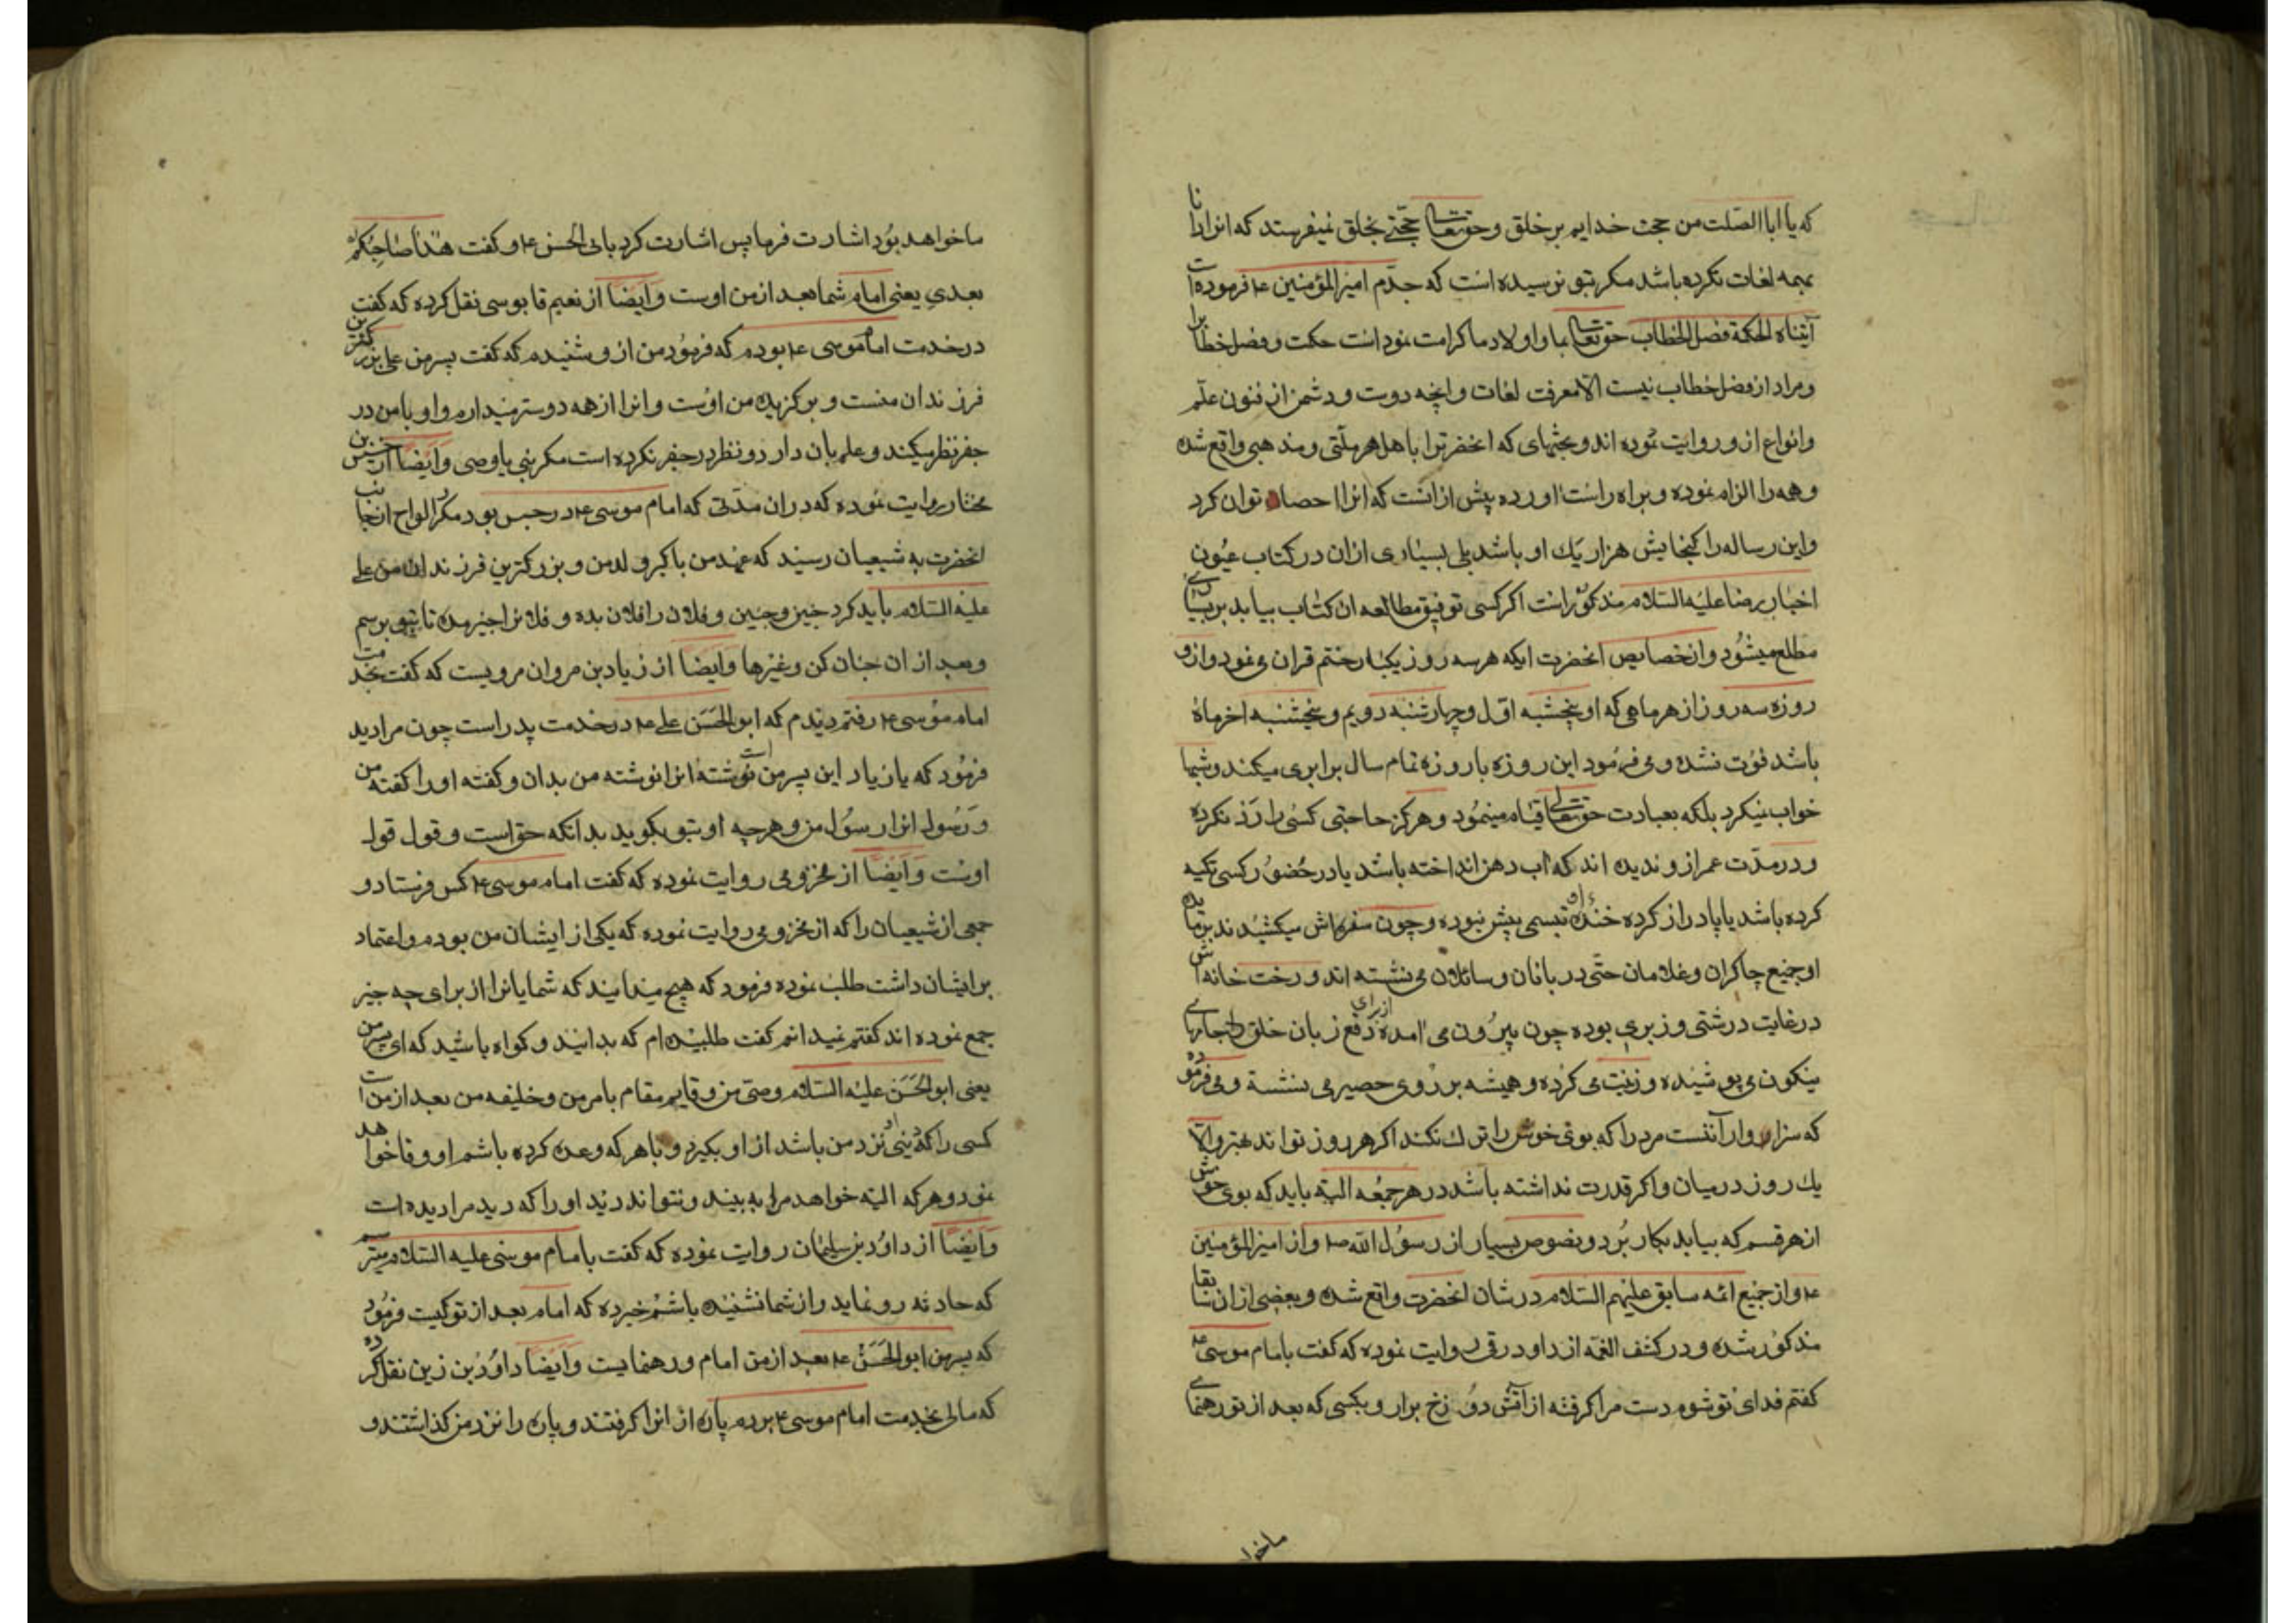 که یا ابا الصلت من حجت خدایم بر خلق و حق تعالی حجتی بخلق نمیفرستد که انرا دانا
بهمه لغات نکرده باشد مکر بتو نرسیده است که جدم امیر المؤمنین ع فرموده است
آتیناه الحکمة فصل الخطاب حق تعالی بما و اولاد ما کرامت نموده است حکمت و فصل خطاب را
و مراد از فصل خطاب نیست الا معرفت لغات و انچه دوست و دشمن از فنون علم
و انواع از و روایت نموده اند و بحثهای که انحضرت را با اهل هر ملتی و مذهبی واقع شده
و همه را الزام نموده و براه راست اورده پیش از انست که انرا احصاء توان کرد
و این رساله را کنجایش هزار یک او باشد بلی بسیاری ازان در کتاب عیون
اخبار رضا علیه السلام مذکور است اکر کسی توفیق مطالعه ان کتاب بیابد بر بسیاری
مطلع میشود و از خصایص انحضرت ایکه هر سه روز یکبار ختم قران می نمود و از و
روزه سه روز از هر ماهی که او پنجشبه اول و چهارشنبه دویم و پنجشنبه اخر ماه
باشد فوت نشده و می فرمود این روزه با روزه تمام سال برابری میکند و شبها
خواب نمیکرد بلکه بعبادت حق تعالی قیام مینمود و هرکز حاجتی کسی را رد نکرده
و در مدت عمر از و ندیده اند که اب دهن انداخته باشد یا در حضور کسی تکیه
کرده باشد یا پا دراز کرده خنده او تبسمی بیش نبوده و چون سفره اش میکشیدند بر مایده
او جمیع چاکران و غلامان حتی دربانان و سائلان می نشسته اند و رخت خانه اش
در غایت درشتی و زبری بوده چون بیرون می امده از برای دفع زبان خلق جامهای
نیکون می پوشیده و زینت می کرده و همیشه بر روی حصیر می نشسته و می فرموده
که سزاوار آنست مرد را که بوی خوش را ترک نکند اکر هر روز تواند بهتر و الا
یک روز در میان و اکر قدرت نداشته باشد در هر جمعه البته باید که بوی خوش
از هر قسم که بیابد بکار برد و نصوص بسیار از رسول الله ص و از امیر المؤمنین
ع و از جمیع ائمه سابق علیهم السلام در شان انحضرت واقع شده و بعضی ازان سابقا
مذکور شده و در کشف الغمه از داود رقی روایت نموده که کفت بامام موسی ع
کفتم فدای تو شوم دست مرا کرفته از آتش دوزخ برار و بکسی که بعد از تو رهنمای
ماخوا
ما خواهد بود اشارت فرما پس اشارت کرد بابی الحسن ع و کفت هذا صاحبکم
بعدی یعنی امام شما بعد از من اوست و ایضا از نعیم قابوسی نقل کرده که کفت
در خدمت امام موسی ع بودم که فرمود من از و شنیدم که کفت پسر من علی بزرکترین
فرزندان منست و برکزیده من اوست و انرا از همه دوستر میدارم و او با من در
جفر نظر میکند و علم بان دارد و نظر در جفر نکرده است مکر نبی یا وصی و ایضا از حسین بن
مختار روایت نموده که در ان مدتی که امام موسی ع در حبس بود مکر الواح از جانب
انحضرت به شیعیان رسید که عهد من با کبر ولد من و بزرکترین فرزندان من علی
علیه السلام باید کرد چنین و چنین و فلان را فلان بده و فلان را چیز مده تا بتو برسم
و بعد از ان چنان کن و غیرها و ایضا از زیاد بن مروان مرویست که کفت بخدمت
امام موسی ع رفتم دیدم که ابو الحسن علی ع در خدمت پدر است چون مرا دید
فرمود که یا زیاد این پسر من است نوشته انرا نوشته من بدان و کفته او را کفته من
و رسول انرا رسول من و هرچه او بتو بکوید بدانکه حق است و قول قول
اوست و ایضا از مخزومی روایت نموده که کفت امام موسی ع کس فرستاد و
جمعی از شیعیان را که از مخزومی روایت نموده که یکی از ایشان من بودم و اعتماد
بر ایشان داشت طلب نموده فرمود که هیچ میدانید که شمایانرا از برای چه چیز
جمع نموده اند کفتم نمیدانم کفت طلبیده ام که بدانید و کواه باشید که ای پسر من
یعنی ابو الحسن علیه السلام وصی من و قایم مقام بامر من و خلیفه من بعد از من است
کسی را که دینی نزد من باشد از او بکیرد و با هر که وعده کرده باشم او وفا خواهد
نمود و هر که البته خواهد مرا به بیند و نتواند دید او را که دید مرا دیده است
و ایضا از داود بن سلیمان روایت نموده که کفت بامام موسی علیه السلام میترسم
که حادثه رو نماید و از شما نشنیده باشم خبر ده که امام بعد از تو کیست فرمود
که پسر من ابو الحسن ع بعد از من امام و رهنمایست و ایضا داود بن زین نقل کرده
که مالی بخدمت امام موسی ع بردم پاره از انرا کرفتند و پاره را نزد من کذاشتند و